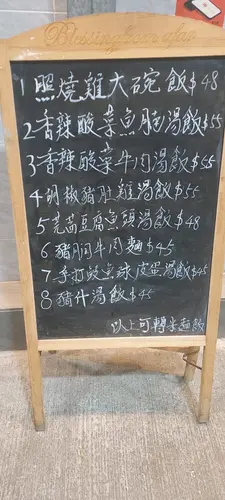 Blessing from afar
1 照燒雞大碗飯$48
2 香辣酸菜魚胸湯飯$55
3 香辣酸菜牛肉湯飯$55
4 胡椒豬肚雞湯飯$55
5 芫茜豆腐魚頭湯飯$48
6 豬胸牛肉麵$45
7 手打蛟虫球皮蛋湯飯$45
8 豬什湯飯$45
以上可轉米麵飯